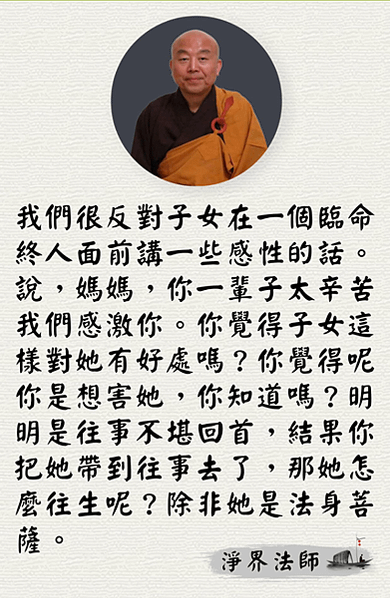 我們很反對子女在一個臨命
終人面前講一些感性的話。
說，媽媽，你一輩子太辛苦
我們感激你。你覺得子女這
樣對她有好處嗎？你覺得呢
你是想害她，你知道嗎？明
明是往事不堪回首，結果你
把她帶到往事去了，那她怎
麼往生呢？除非她是法身菩
薩。
淨界法師